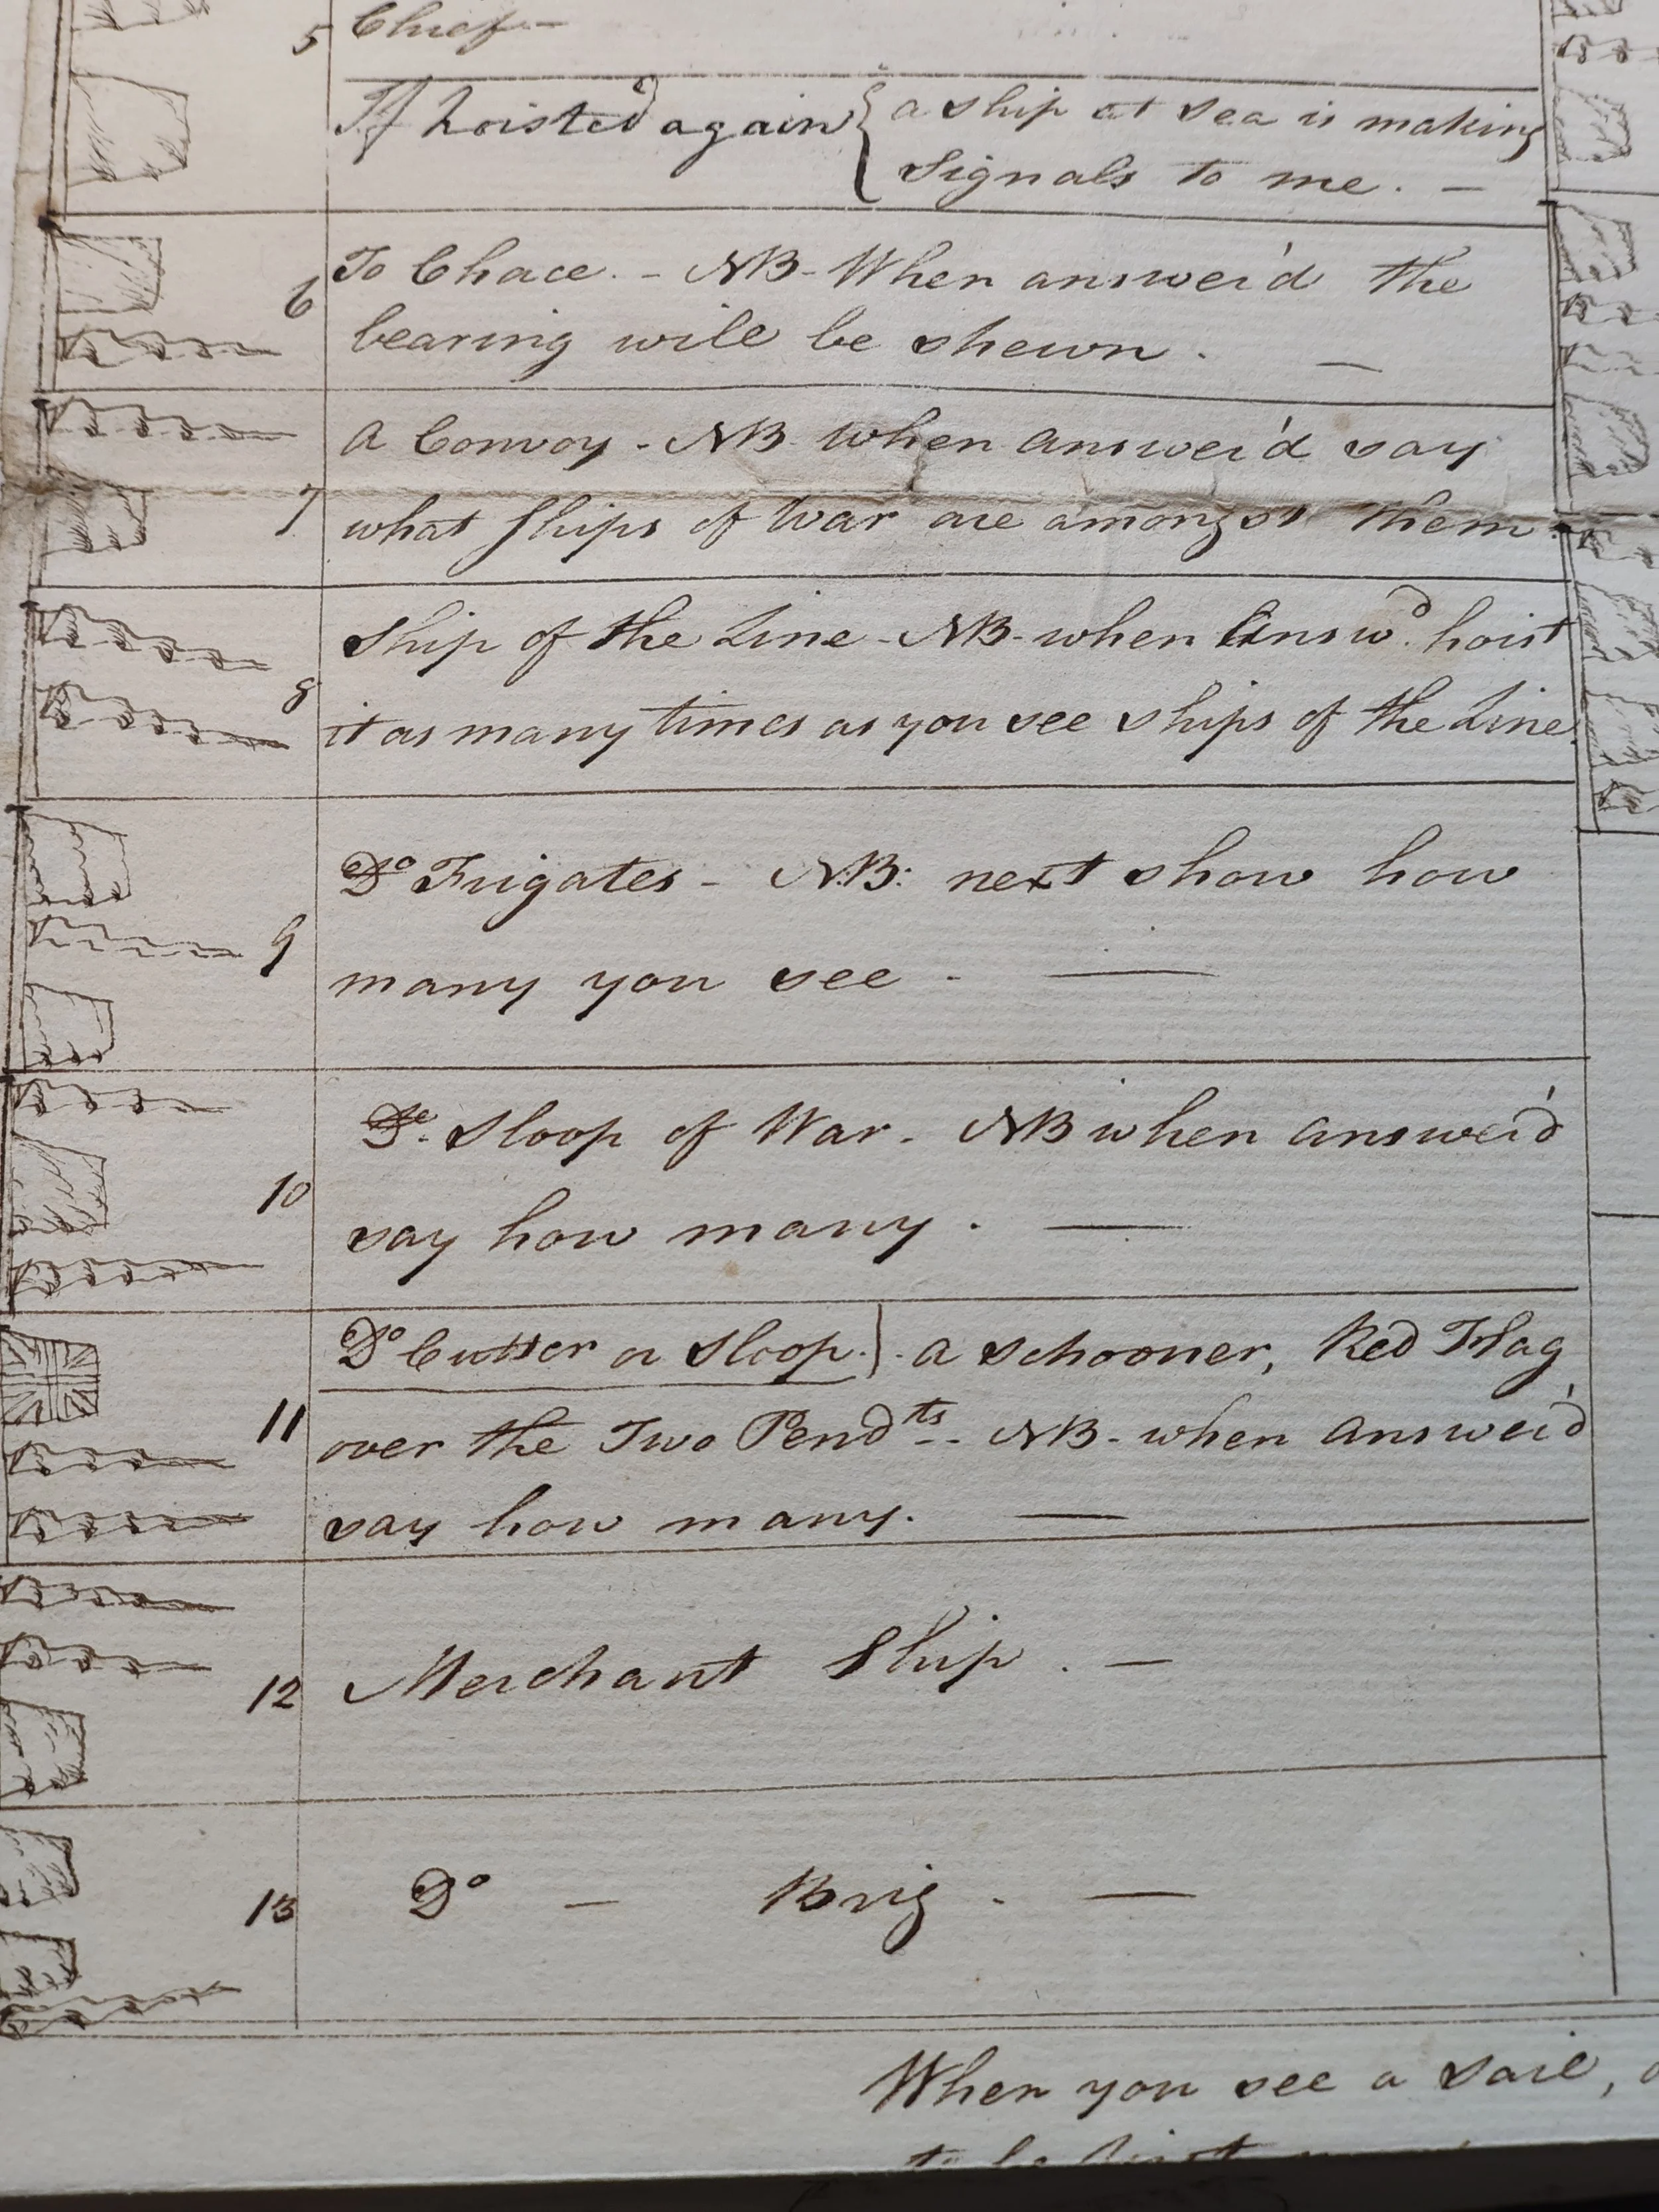 5 Chief -
If hoisted again { a ship at sea is making
Signals to me. -
To Chace. - NB - When answer'd the
6 bearing will be shewn. -
A Convoy - NB when answer'd say
7 what Ships of War are amongst them.
Ship of the Line - NB - when Answd. hoist
8 it as many times as you see ships of the Line.
Do Frigates - N:B: next show how
9 many you see -
Do. Sloop of War. NB when answer'd
10 say how many.
Do Cutter or Sloop. } a schooner, Red Flag
11 over the Two Pendts - NB - when answer'd
say how many.
12 Merchant Ship. -
13 Do - Brig. -
When you see a sail,
to be